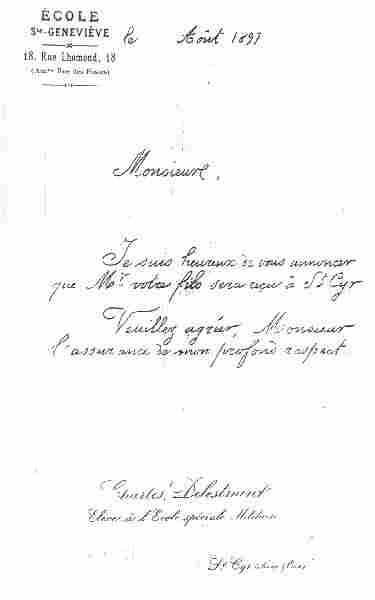 ÉCOLE
Ste-GENEVIÈVE
18, Rue Lhomond, 18
(Ancne Rue des Postes)
le Août 1897
Monsieur,
Je suis heureux de vous annoncer
que Mr votre fils sera reçu à St Cyr
Veuillez agréer, Monsieur
l'assurance de mon profond respect
Charles Delestraint
Elève à l'Ecole spéciale Militaire
St Cyr